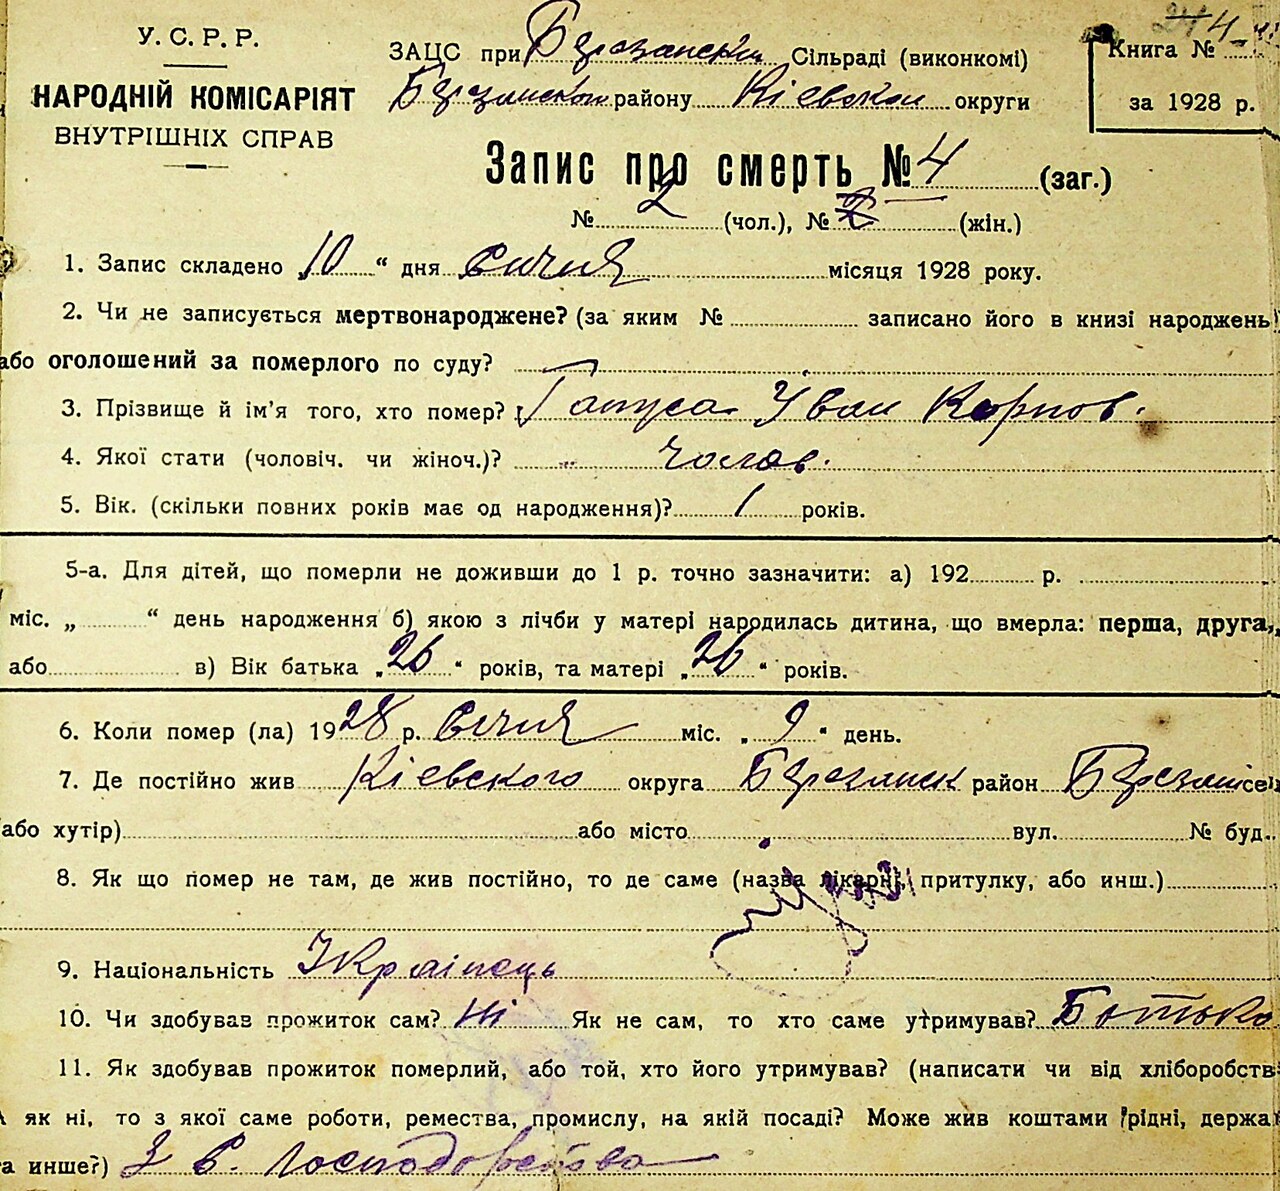 У. С. Р. Р.
НАРОДНІЙ КОМІСАРІЯТ
ВНУТРІШНІХ СПРАВ
ЗАЦС при Березанскім Сільраді (виконкомі)
Березанском району Кіевскои округи
Книга № 4
за 1928 р.
Запис про смерть № 4 (заг.)
№ 2 (чол.), № (жін.)
1. Запис складено „10“ дня січня місяця 1928 року.
2. Чи не записується мертвонароджене? (за яким № записано його в книзі народжень)
або оголошений за померлого по суду?
3. Прізвище й ім'я того, хто помер? Гапуса Иван Карпов.
4. Якої стати (чоловіч. чи жіноч.)? чолов.
5. Вік. (скільки повних років має од народження)? 1 років.
5-а. Для дітей, що померли не доживши до 1 р. точно зазначити: а) 192 р.
міс. „ “ день народження б) якою з лічби у матері народилась дитина, що вмерла: перша, друга,
або в) Вік батька „26“ років, та матері „26“ років.
6. Коли помер (ла) 1928 р. січня міс. „9“ день.
7. Де постійно жив Кіевского округа Березанск район Березань се
(або хутір) або місто вул. № буд.
8. Як що помер не там, де жив постійно, то де саме (назва лікарні, притулку, або инш.)
9. Національність Українець
10. Чи здобував прожиток сам? Ні Як не сам, то хто саме утримував? Батько
11. Як здобував прожиток померлий, або той, хто його утримував? (написати чи від хліборобств
А як ні, то з якої саме роботи, ремества, промислу, на якій посаді? Може жив коштами рідні, держа
та инше?) З с. господарства